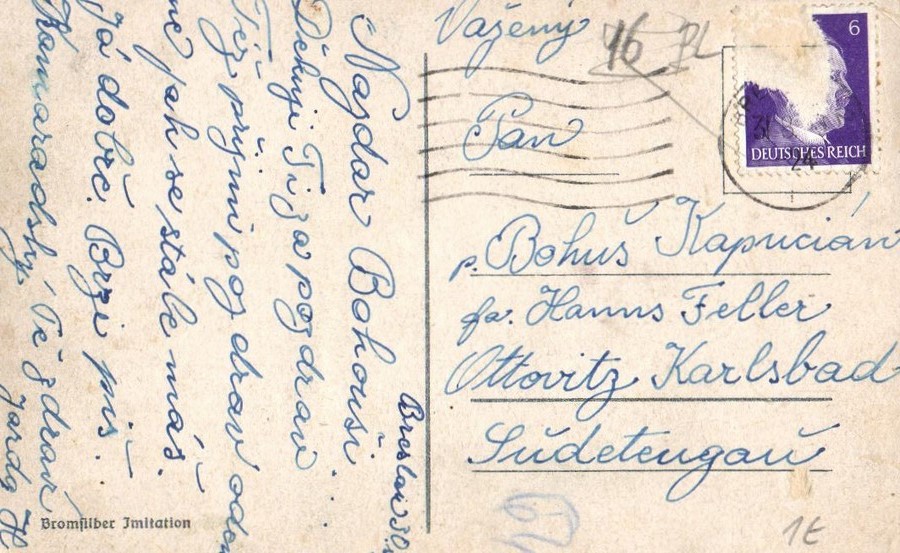 Breslau 30.
Nazdar Bohouši.
Děkuji Ti za pozdrav
Též přijmi pozdrav ode
ne jak se stále máš.
Já dobře. Brzi piš.
Kamarádsky Tě zdraví
Jarda H
Bromsilber Imitation
Vážený
Pan
p. Bohuš Kapucián
fa. Hanns Feller
Ottovitz Karlsbad
Sudetengau
16 PL
6
DEUTSCHES REICH
1E